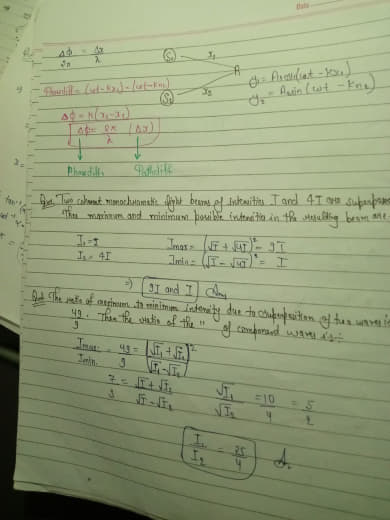 Date
Δφ/2π = Δx/λ
S₁ x₁
A
S₂ x₂
y₁ = A₁ sin(ωt - kx₁)
y₂ = A₂ sin(ωt - kx₂)
Phase diff = (ωt - kx₁) - (ωt - kx₂)
Δφ = k(x₂ - x₁)
Δφ = 2π/λ (Δx)
Phase diff. Path diff
Que. Two coherent monochromatic light beams of intensities I and 4I are superposed
The maximum and minimum possible intensities in the resulting beam are
I₁ = I Imax = (√I + √4I)² = 9I
I₂ = 4I Imin = (√I - √4I)² = I
⇒ 9I and I Ans
Que The ratio of maximum to minimum intensity due to superposition of two waves is
49/9. Then the ratio of the " of component waves is:-
Imax/Imin = 49/9 = (√I₁ + √I₂/√I₁ - √I₂)²
7/3 = √I₁ + √I₂/√I₁ - √I₂ √I₁/√I₂ = 10/4 = 5/2
I₁/I₂ = 25/4 A.